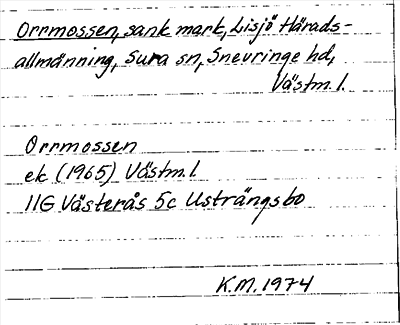 Orrmossen, sank mark, Lisjö Härads-
allmänning, Sura sn, Snevringe hd,
Västm. l.
Orrmossen
ek (1965) Västm. l
11G Västerås 5c Usträngsbo
K.M. 1974